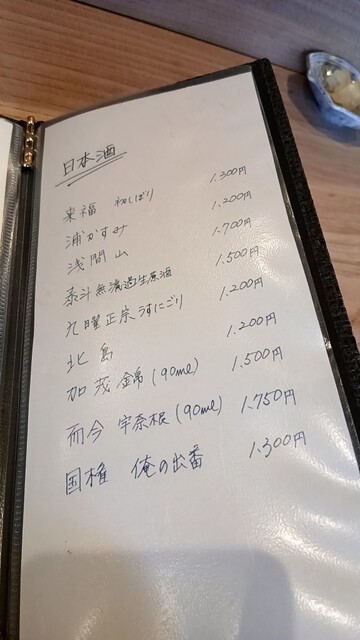 日本酒
来福 初しぼり 1.300円
浦かすみ 1.200円
浅間山 1.700円
泰斗無濾過生原酒 1.500円
九曜正宗うすにごり 1.200円
北島 1.200円
加茂錦(90ml) 1.500円
而今 宇奈根(90ml) 1.750円
国権 俺の出番 1.300円